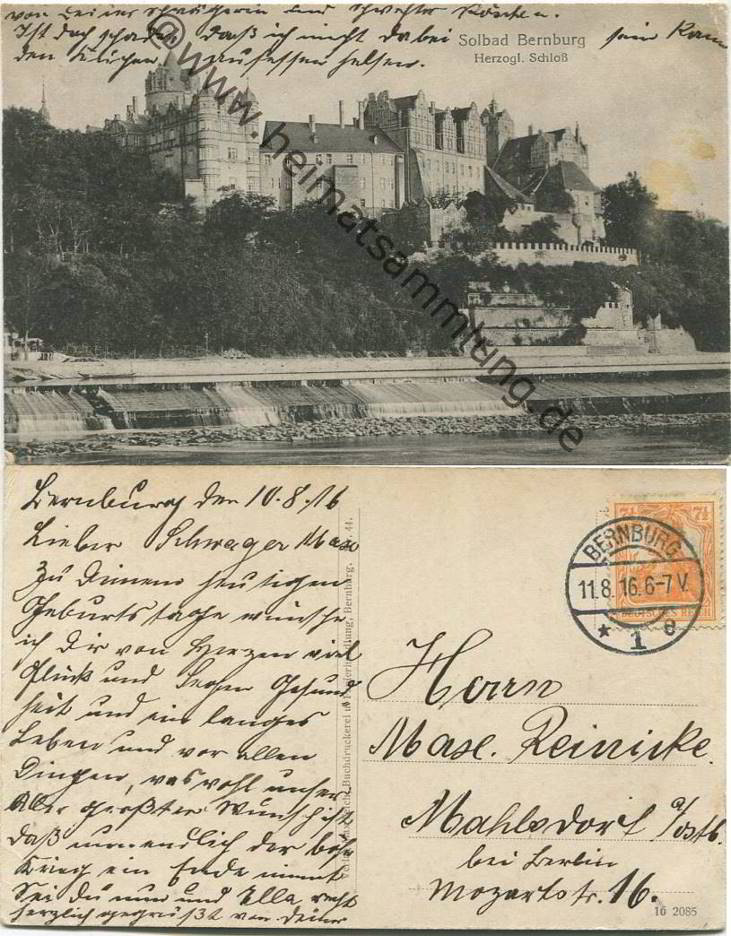 von Deiner Schwägerin und Schwester Röschen.
Ist doch schade, daß ich nicht dabei sein kann
den Kuchen aufessen helfen.
Solbad Bernburg
Herzogl. Schloß
©www.heimatsammlung.de
Bernburg den 10.8.16
Lieber Schwager Max
Zu Deinem heutigen
Geburtstage wünsche
ich Dir von Herzen viel
Glück und Segen Gesund
heit und ein langes
Leben und vor allen
Dingen, was wohl unser
Aller größter Wunsch ist
daß nun endlich der böse
Krieg ein Ende nimmt
Sei Du nun und Ella recht
herzlich gegrüßt von Deiner
Buchdruckerei Bernburg. 44.
7½ 7½
BERNBURG
11.8.16.6-7V.
* 1 e
Herrn
Max. Reinicke.
Mahlsdorf a/Ostb.
bei Berlin
Mozartstr. 16.
16 2085